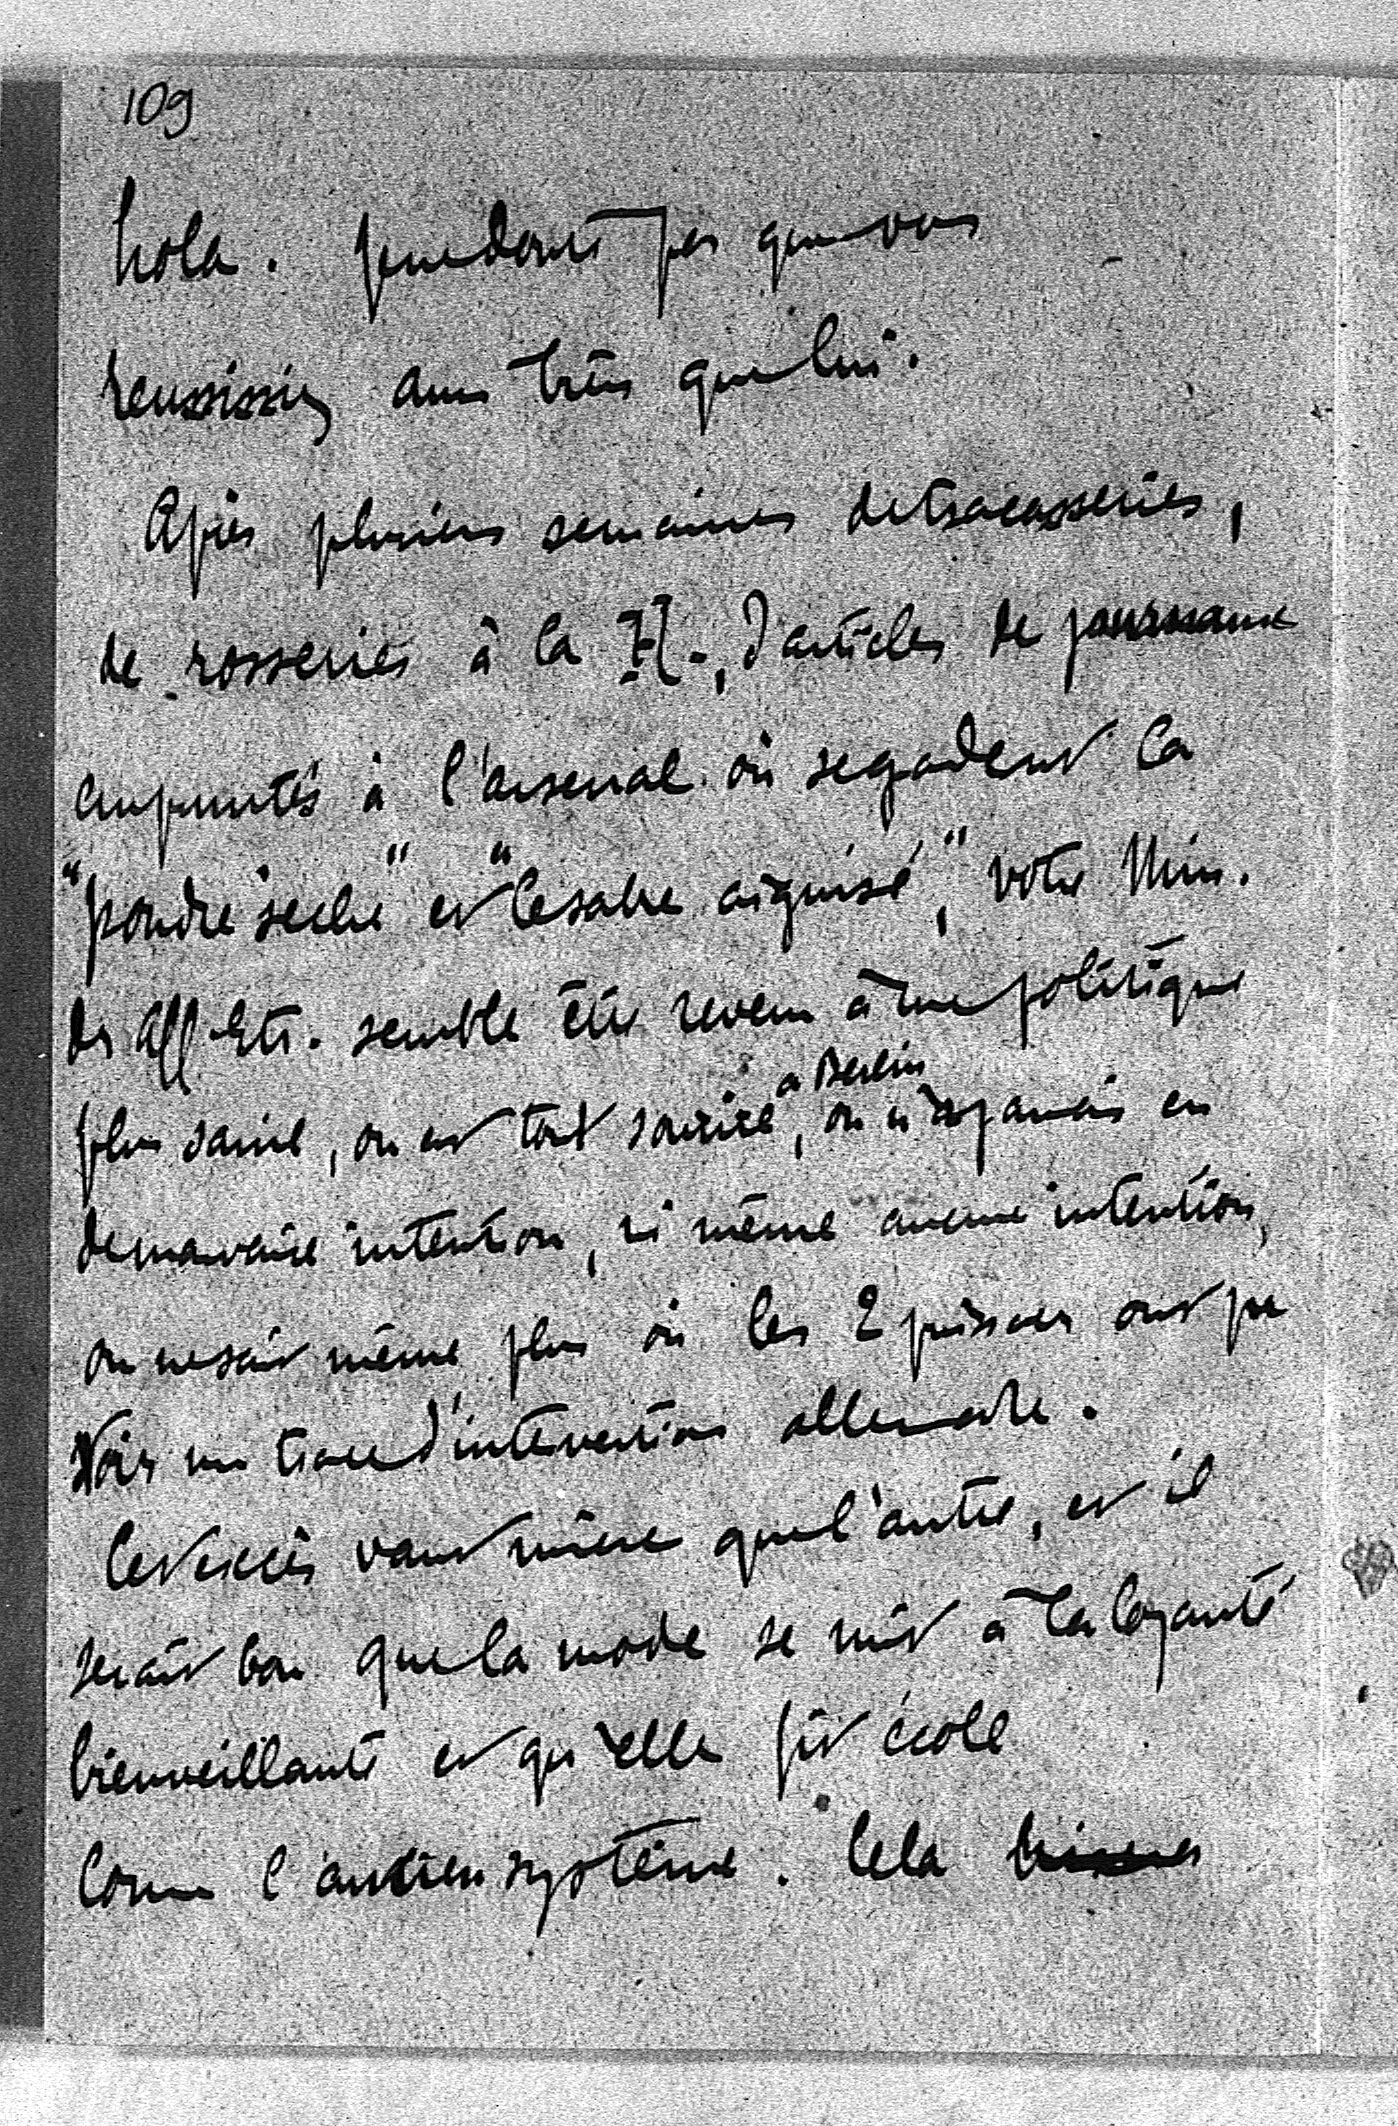 109
hola. Je ne doute pas que vous
reussissiez aussi bien que lui.
Après plusieurs semaines de tracasseries,
de rosseries à la H., d'articles de journaux
empruntés à l'arsenal où se gardent la
"poudre sèche" et "le sabre aiguisé", votre Min.
des Aff Etr. semble être revenu à une politique
plus saine, on est tout sourire à Berlin, on n'a jamais eu
de mauvaise intention, ni même aucune intention,
on ne sait même plus où les 2 puissances ont pu
voir une trace d'intervention allemande.
Cet excès vaut mieux que l'autre, et il
serait bon que la mode se mît à la loyauté
bienveillante et qu'elle fît école
comme l'ancien système. Cela